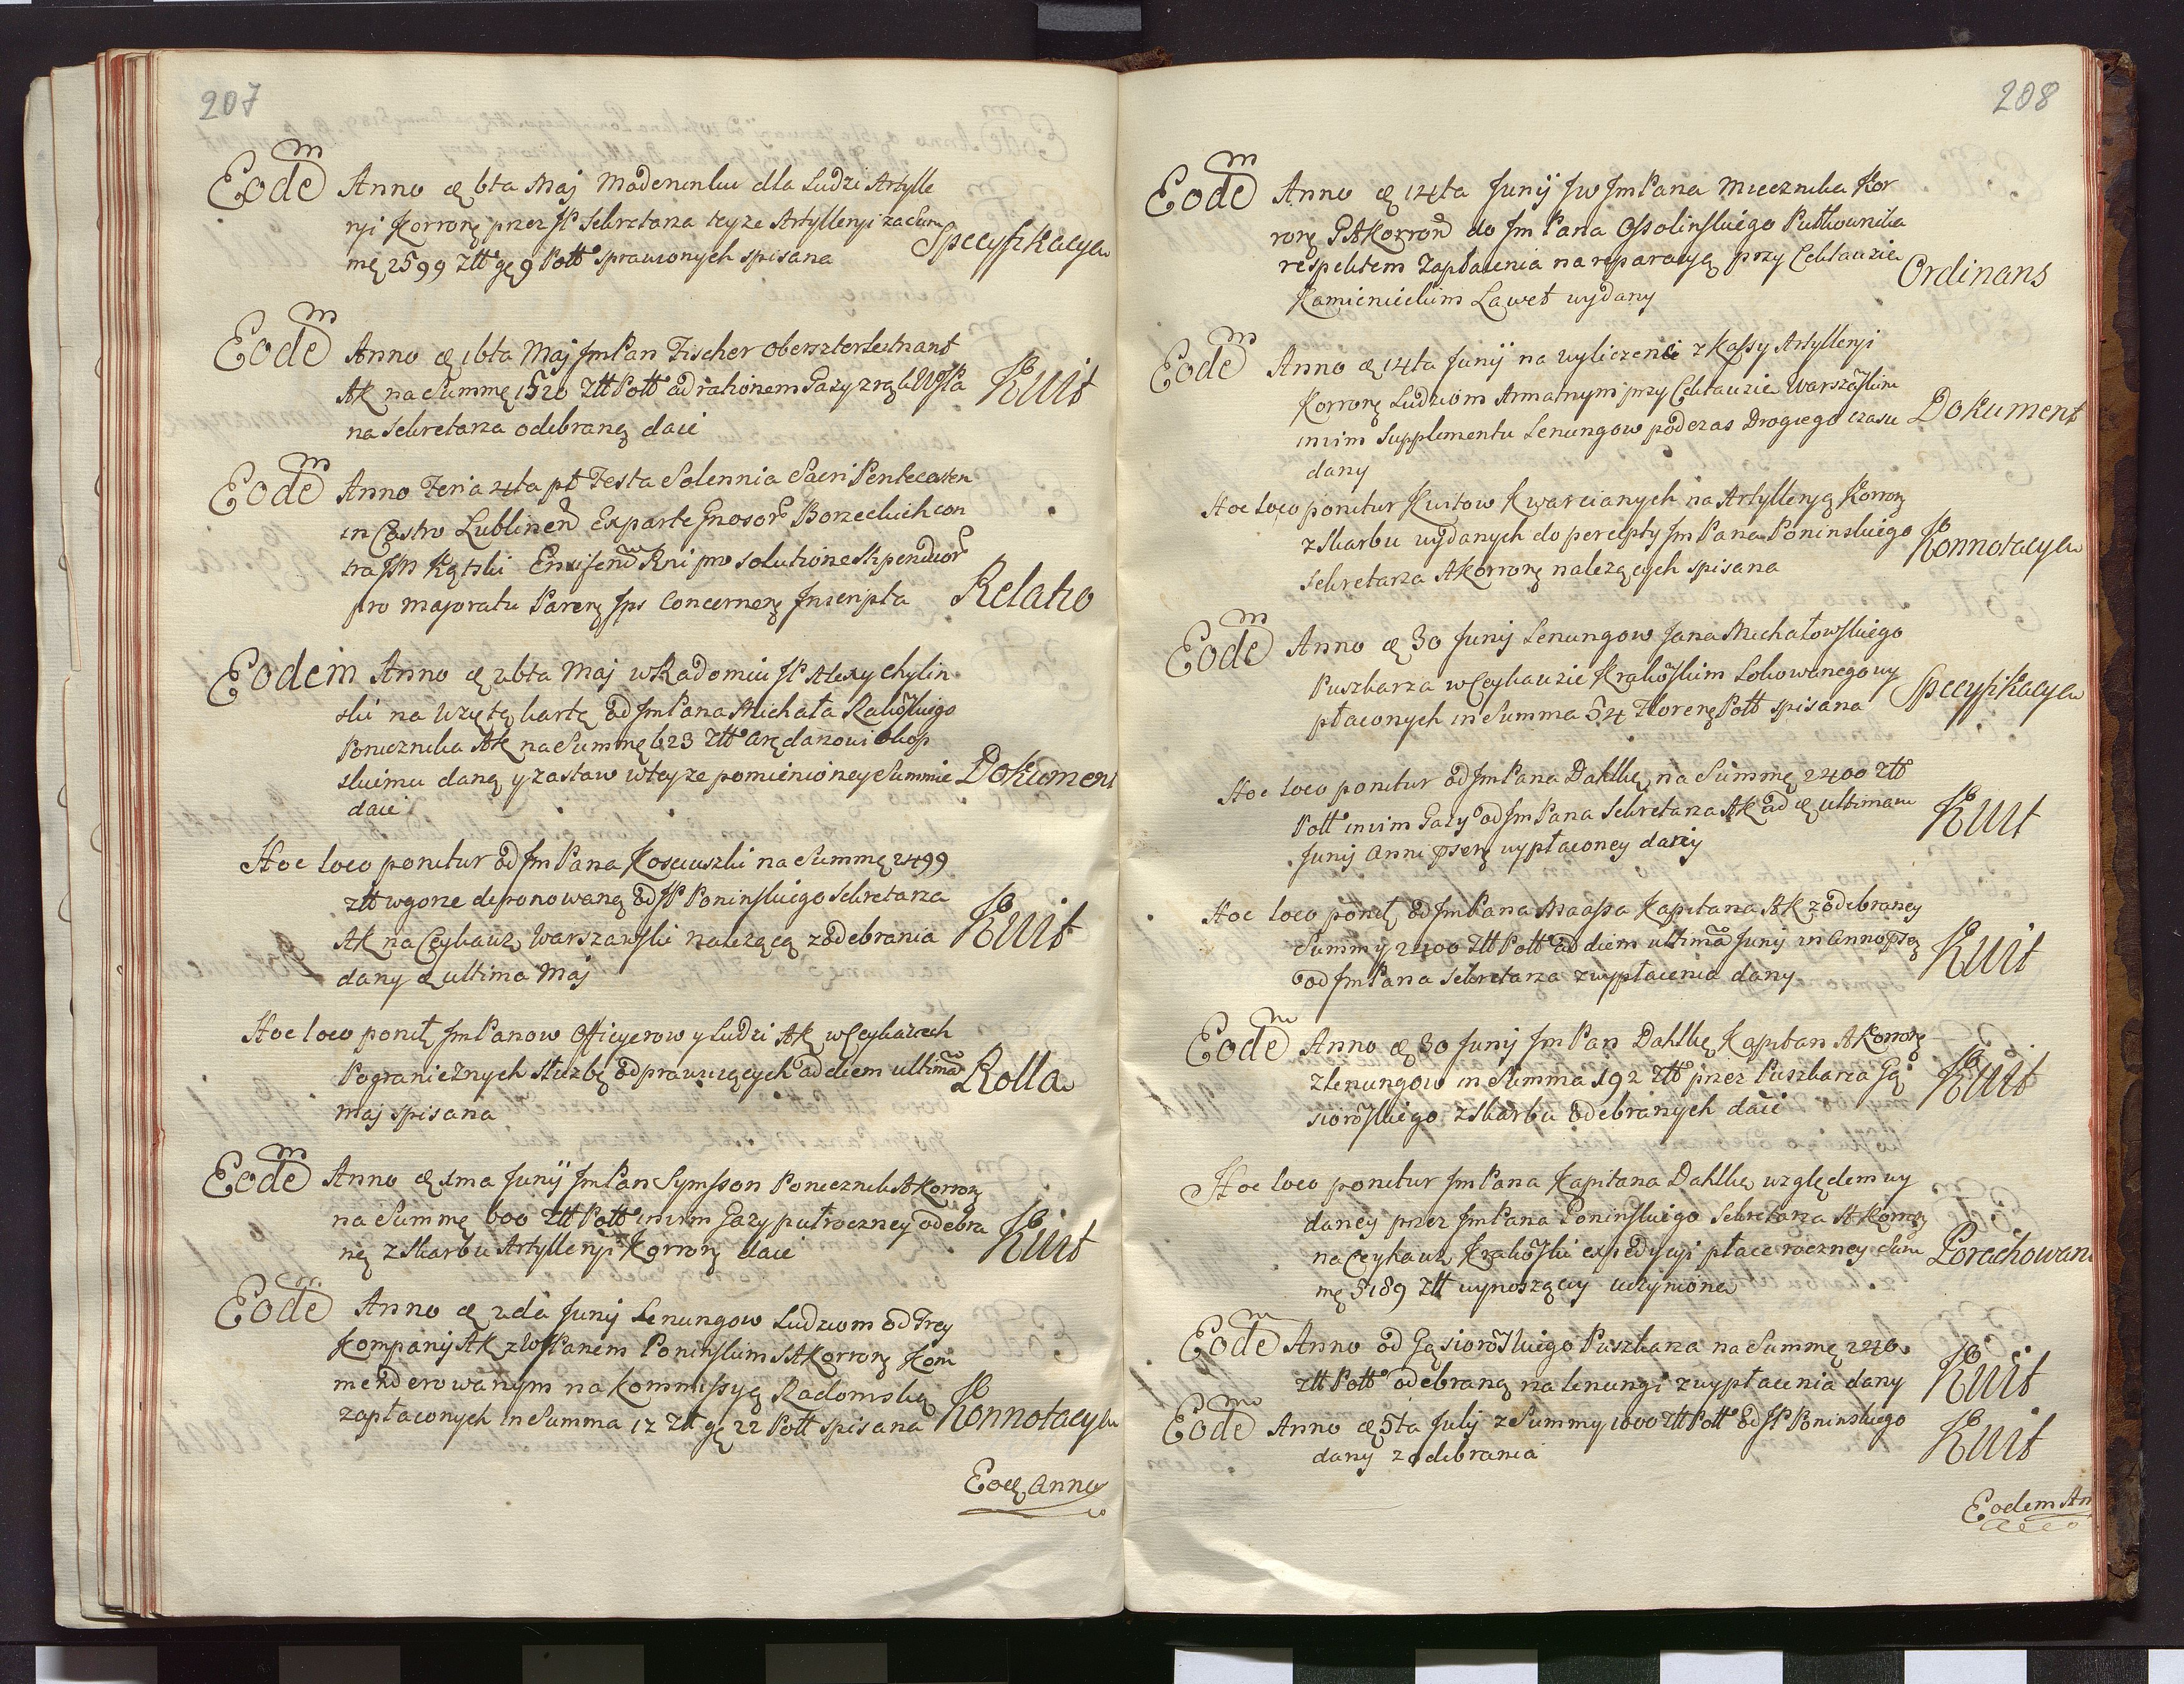 207
Eodem Anno d 6ta Maj Moderunku dla Ludzi Artylle
ryi Korronę przez JP Sekretarza teyze Artylleryi za Sum
mę 2599 Ztt gę 9 Poll sprawionych spisana Specyfikacya
Eodem Anno d 16ta Maj JmPan Fischer Oberszterleitnant
AK na Summę 1520 Ztt Poll ad rationem Gazy z rąk WJPa
na Sekretarza odebraną daie Kwit
Eodem Anno Feria 4ta pt Festa Solennia Sacri Pentecosten
in Castro Lublinen Ex parte Gnosor Borzeckich con
tra JM Kątski Enxifend Rni pro solutione Stipendior
pro Majoratu Paren Jps Concernen Inscripta Relatio
Eodem Anno d 26ta Maj w Radomiu JP Alexy Chylin
ski na wziętą kartę od JmPana Michała Rakowskiego
Poniecznika AK na Summę 623 Ztt Arędarzowi Okop
skiemu daną y zastaw w teyze pomienioney Summie
daie Dokument
Hoc loco ponitur od JmPana Kosciuszki na Summę 2499
Ztt w gorze deponowaną od JP Poninskiego Sekretarza
AK na Ceykauz Warszawski nalezącą z odebrania
dany d ultima Maj Kwit
Hoc loco ponit JmPanow Officyerow y Ludzi AK w Ceykauzach
Pogranicznych służbę odprawuiących ad diem ultima
Maj spisana Rolla
Eodem Anno d 1ma Junij JmPan Sympson Poniecznik AKorron
na Summę 600 Ztt Poll winim Gazy pułroczney odebra
nę z Skarbu Artylleryi Korronę daie Kwit
Eodem Anno d 2da Junij Lenungow Ludziom od Trey
Kompanij AK z WJPanem Poninskim SAKorronę Kom
menderowanym na Kommissyą Radomską
zapłaconych in Summa 12 Ztt gę 22 Poll spisana Konnotacya
Eod Anno
208
Eodem Anno d 14ta Junij JW JmPana Miecznika Kor
ronę GAKorron do JmPana Ossolinskiego Pułkownika
respektem Zapłacenia na reparacyą przy Cekauzie
Kamienieckim Lawet wydany Ordinans
Eodem Anno d 14ta Junij na wyliczenie z Kassy Artylleryi
Korronę Ludziom Armatnym przy Cekauzie Warszawskim
inim Supplementu Lenungow podczas Drogiego czasu
dany Dokument
Hoc loco ponitur Kwitow Kwarcianych na Artylleryą Korron
z Skarbu wydanych do percepty JmPana Poninskiego
Sekretarza AKorronę nalezących spisana Konnotacya
Eodem Anno d 30 Junij Lenungow Jana Michałowskiego
Puszkarza w Ceykauzie Krakowskim Lokowanego wy
płaconych in Summa 54 Florenę Poll spisana Specyfikacya
Hoc loco ponitur od JmPana Dahlkę na Summę 2400 Ztt
Poll inim Gazy od JmPana Sekretarza AK ad d ultimam
Junij Anni psenę wypłaconey daniy Kwit
Hoc loco ponit od JmPana Maassa Kapitana AK z odebraney
Summy 2400 Ztt Poll ad diem ultima Junij in Anno psen
od JmPana Sekretarza z wypłacenia dany Kwit
Eodem Anno d 30 Junij JmPan Dahlkę Kapitan AKorronę
z Lenungow in Summa 192 Ztt przez Puszkarza Gą
siorowskiego z Skarbu odebranych daie Kwit
Hoc loco ponitur JmPana Kapitana Dahlkę względem wy
daney przez JmPana Poninskiego Sekretarza AKorronę
na Ceykauz Krakowski expedycyi płace roczney Sum
mę 3189 Ztt wynoszącey uczyniona Porachowani
Eodem Anno od Gąsiorowskiego Puszkarza na Summę 240
Ztt Poll odebraną na lenungi z wypłacenia dany Kwit
Eodem Anno d 5ta Julij z Summy 1000 Ztt Poll od JP Poninskiego
dany z odebrania Kwit
Eodem An